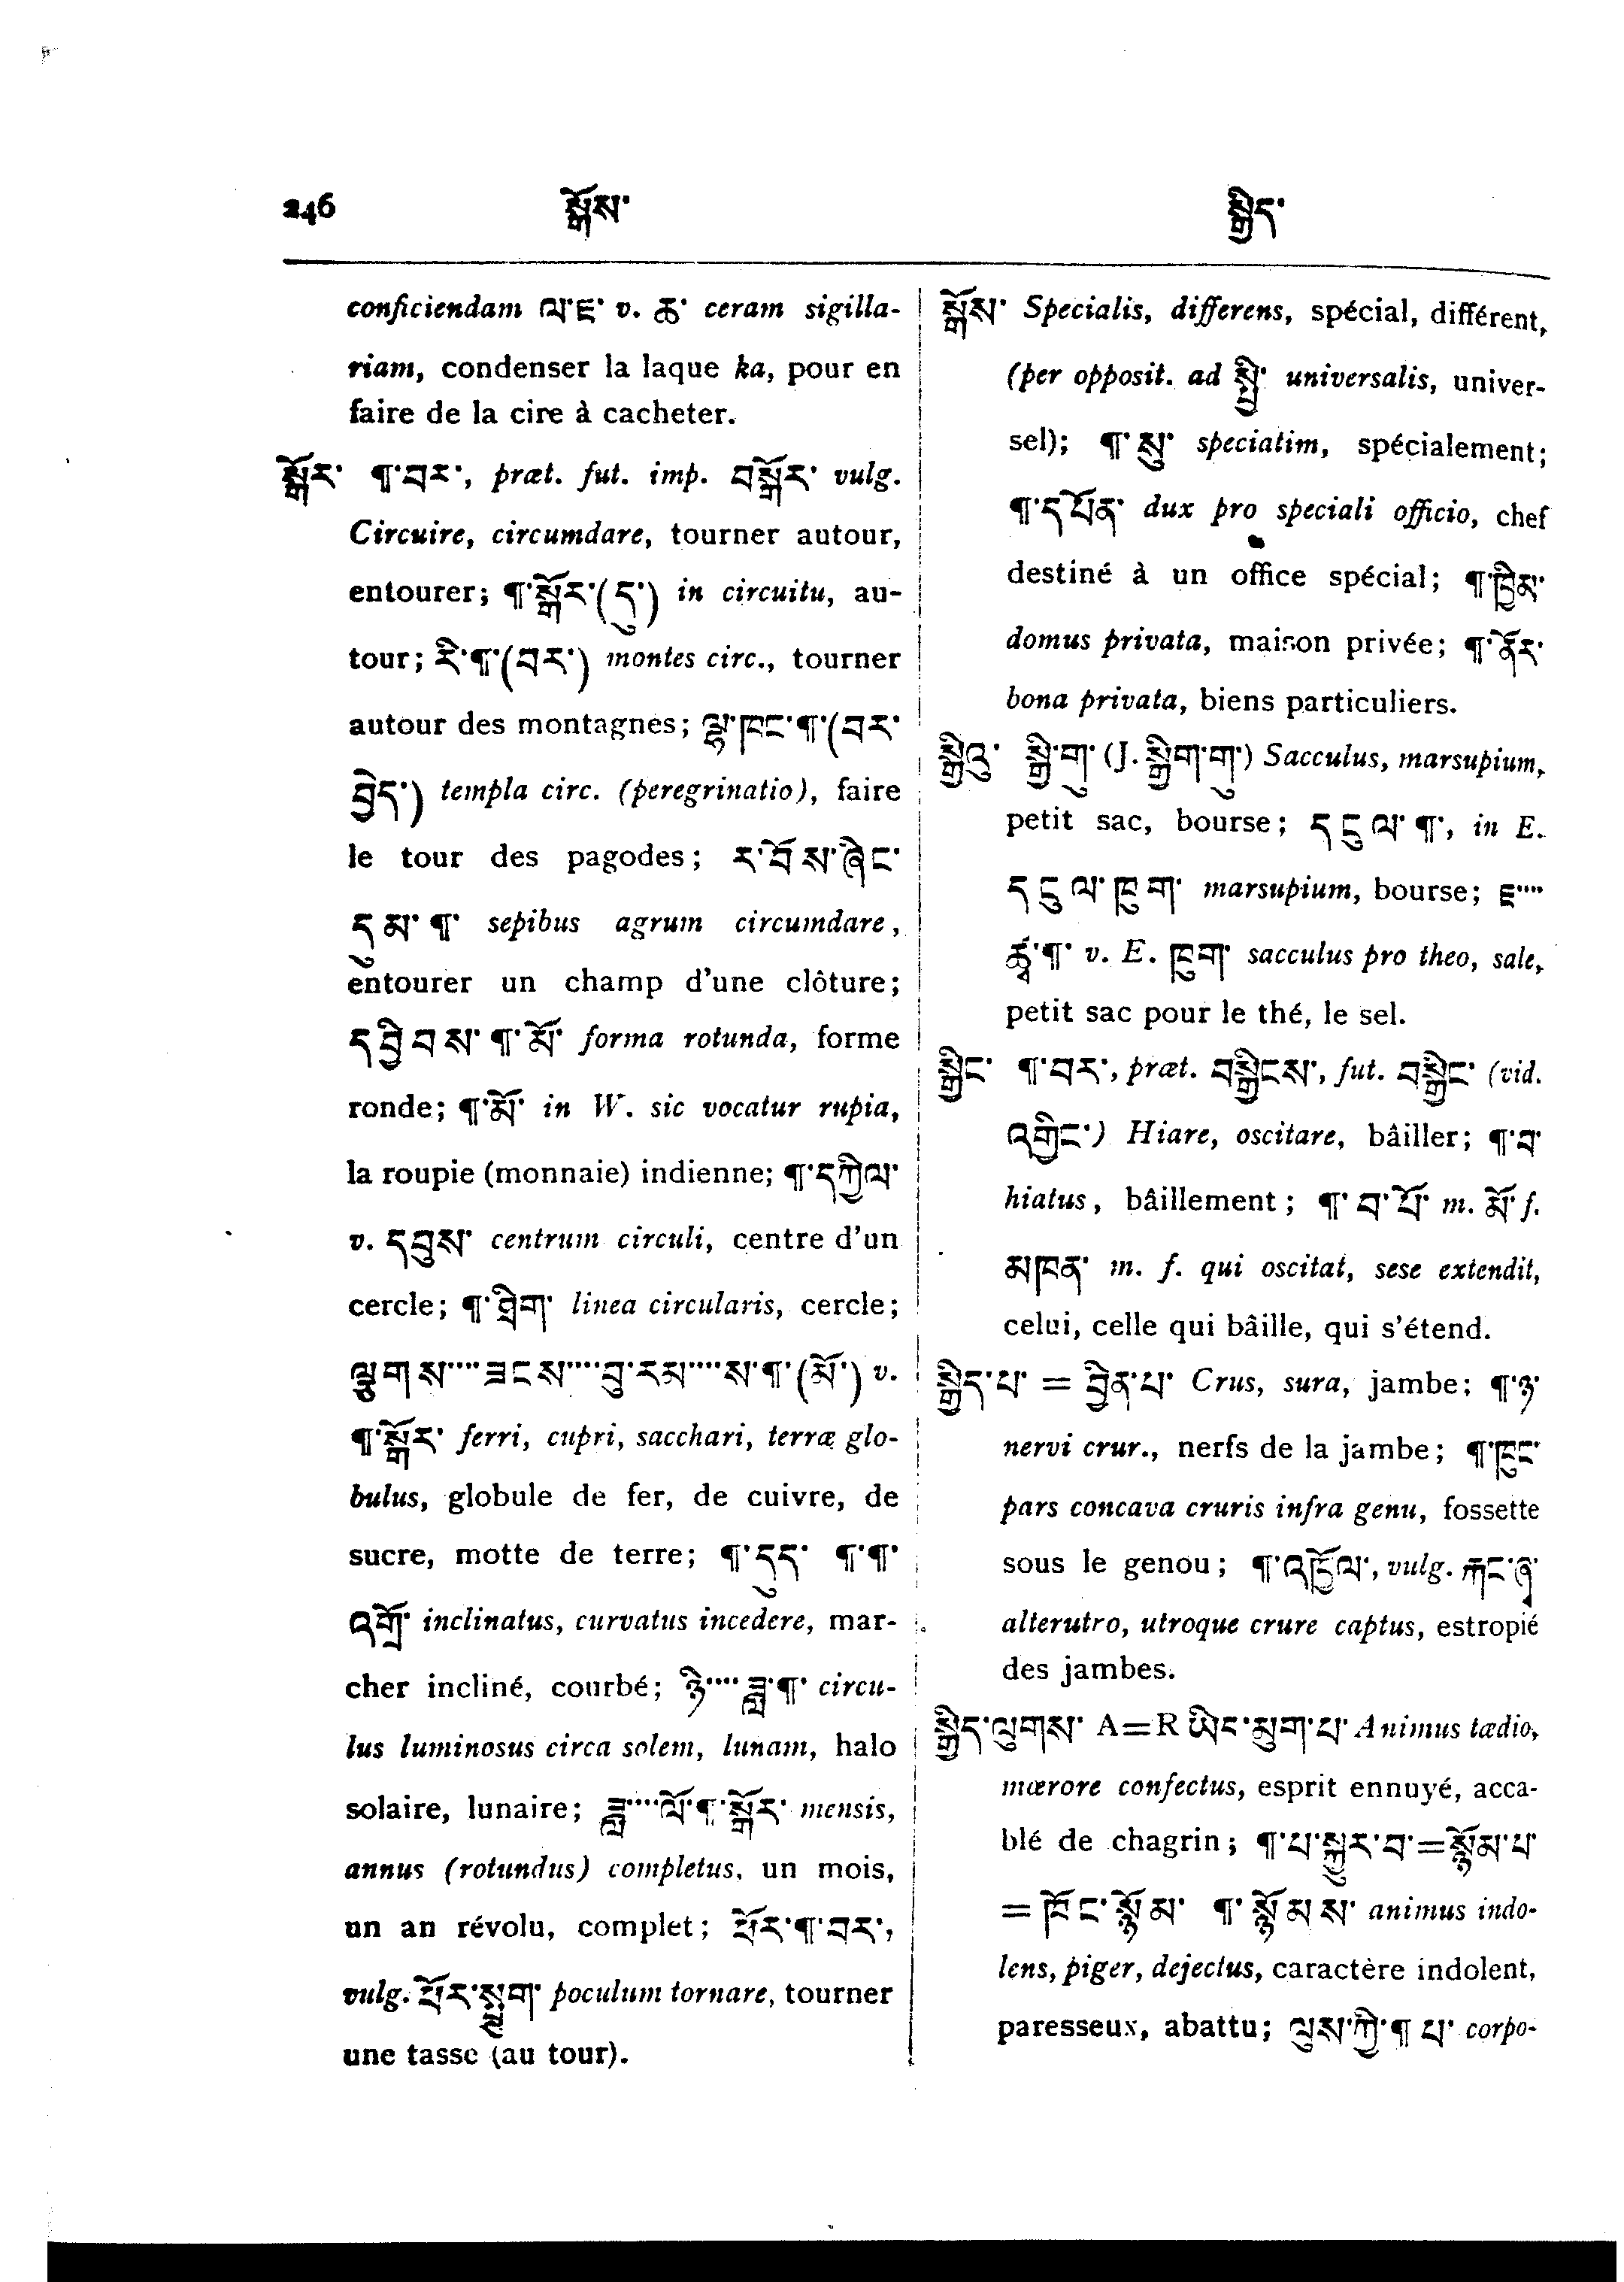 246 སྒོས་ སྒྱིད་
conficiendam ལ་ཇ་ v. ཆ་ ceram sigilla-
riam, condenser la laque ka, pour en
faire de la cire à cacheter.
སྒོར་ ¶་བར་, præt. fut. imp. བསྒོར་ vulg.
Circuire, circumdare, tourner autour,
entourer; ¶་སྒོར་(དུ་) in circuitu, au-
tour; རི་¶་(བར་) montes circ., tourner
autour des montagnes; ལྷ་ཁང་¶་(བར་
བྱེད་) templa circ. (peregrinatio), faire
le tour des pagodes; ར་བོས་ཞིང་
དུམ་¶་ sepibus agrum circumdare,
entourer un champ d'une clôture;
དབྱིབས་¶་མོ་ forma rotunda, forme
ronde; ¶་མོ་ in W. sic vocatur rupia,
la roupie (monnaie) indienne; ¶་དཀྱིལ་
v. དབུས་ centrum circuli, centre d'un
cercle; ¶་ཐིག་ linea circularis, cercle;
ལྕགས་····ཟངས་····བུ་རམ་····ས་¶་(མོ་) v.
¶་སྒོར་ ferri, cupri, sacchari, terræ glo-
bulus, globule de fer, de cuivre, de
sucre, motte de terre; ¶་དུད་ ¶་¶་
འགྲོ་ inclinatus, curvatus incedere, mar-
cher incliné, courbé; ཉི་····ཟླ་¶་ circu-
lus luminosus circa solem, lunam, halo
solaire, lunaire; ཟླ་····ལོ་¶་སྒོར་ mensis,
annus (rotundus) completus, un mois,
un an révolu, complet; ཕོར་¶་བར་,
vulg. ཕོར་ poculum tornare, tourner
une tasse (au tour).
སྒོས་ Specialis, differens, spécial, différent,
(per opposit. ad སྤྱི་ universalis, univer-
sel); ¶་སུ་ speciatim, spécialement;
¶་དཔོན་ dux pro speciali officio, chef
destiné à un office spécial; ¶་ཁྱིམ་
domus privata, maison privée; ¶་ནོར་
bona privata, biens particuliers.
སྒྱིའུ་ སྒྱི་གུ་ (J. སྒྱིག་གུ་) Sacculus, marsupium,
petit sac, bourse; དངུལ་¶་, in E.
དངུལ་ཁུག་ marsupium, bourse; ཇ་····
ཚྭ་¶་ v. E. ཁུག་ sacculus pro theo, sale,
petit sac pour le thé, le sel.
སྒྱིང་ ¶་བར་, præt. བསྒྱིངས་, fut. བསྒྱིང་ (vid.
འགྱིང་) Hiare, oscitare, bâiller; ¶་བ་
hiatus, bâillement; ¶་བ་པོ་ m. མོ་ f.
མཁན་ m. f. qui oscitat, sese extendit,
celui, celle qui bâille, qui s'étend.
སྒྱིད་པ་ = བྱིན་པ་ Crus, sura, jambe; ¶་ཉ་
nervi crur., nerfs de la jambe; ¶་ཁུང་
pars concava cruris infra genu, fossette
sous le genou; ¶་འཁྲོལ་, vulg. རྐང་ཞ་
alterutro, utroque crure captus, estropié
des jambes.
སྒྱིད་ལུགས་ A=R ཡིད་མུག་པ་ Animus tædio,
mœrore confectus, esprit ennuyé, acca-
blé de chagrin; ¶་པ་སྐྱུར་བ་=སྙོམ་པ་
= ཁོང་སྙོམ་ ¶་སྙོམས་ animus indo-
lens, piger, dejectus, caractère indolent,
paresseux, abattu; ལུས་ཀྱི་¶་པ་ corpo-